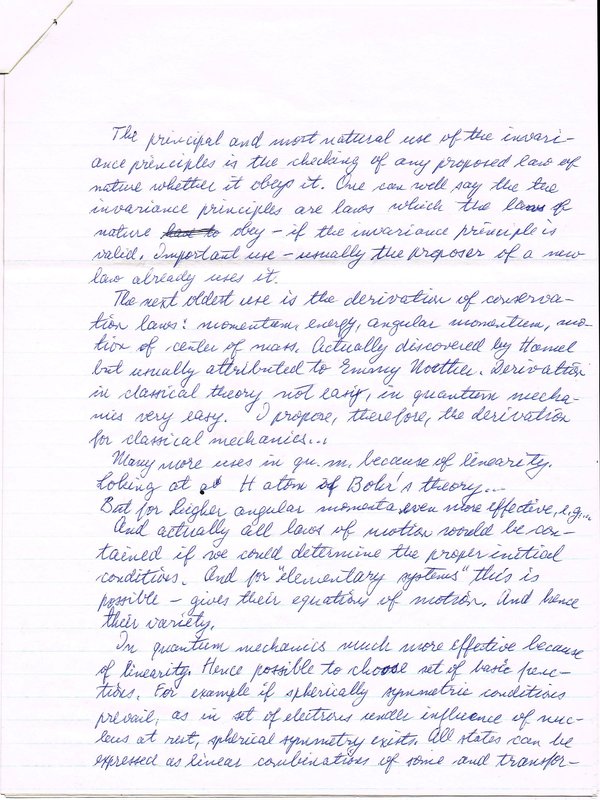 The principal and most natural use of the invari-
ance principles is the checking of any proposed law of
nature whether it obeys it. One can well say the the
invariance principles are laws which the laws of
nature have to obey – if the invariance principle is
valid. Important use – usually the proposer of a new
law already uses it.
The next oldest use is the derivation of conserva-
tion laws: momentum, energy, angular momentum, mo-
tion of center of mass. Actually discovered by Hamel
but usually attributed to Emmy Noether. Derivation
in classical theory not easy, in quantum mecha-
nics very easy. I propose, therefore, the derivation
for classical mechanics...
Many more uses in qu. m. because of linearity.
Loking at H atom of Bohr's theory...
But for higher angular momenta even more effective, e.g...
And actually all laws of motion would be con-
tained if we could determine the proper initial
conditions. And for "elementary systems" this is
possible – gives their equations of motion. And hence
their variety.
In quantum mechanics much more effective because
of linearity. Hence possible to choose set of basic func-
tions. For example if spherically symmetric conditions
prevail, as in set of electrons under influence of nuc-
leus at rest, spherical symmetry exists. All states can be
expressed as linear combinations of some and transfor-